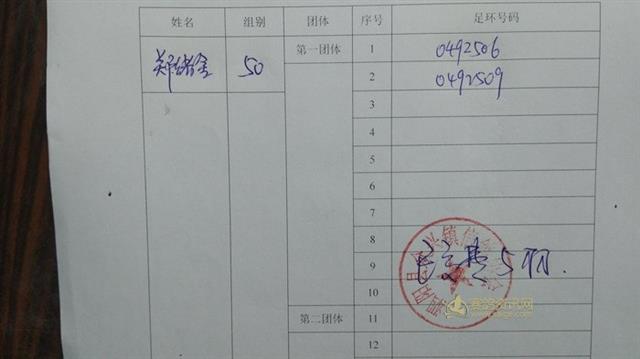 姓名 组别 团体 序号 足环号码
郑储金 50 第一团体 1 0492506
2 0492509
3
4
5
6
7
8
9
10
第二团体 11
12